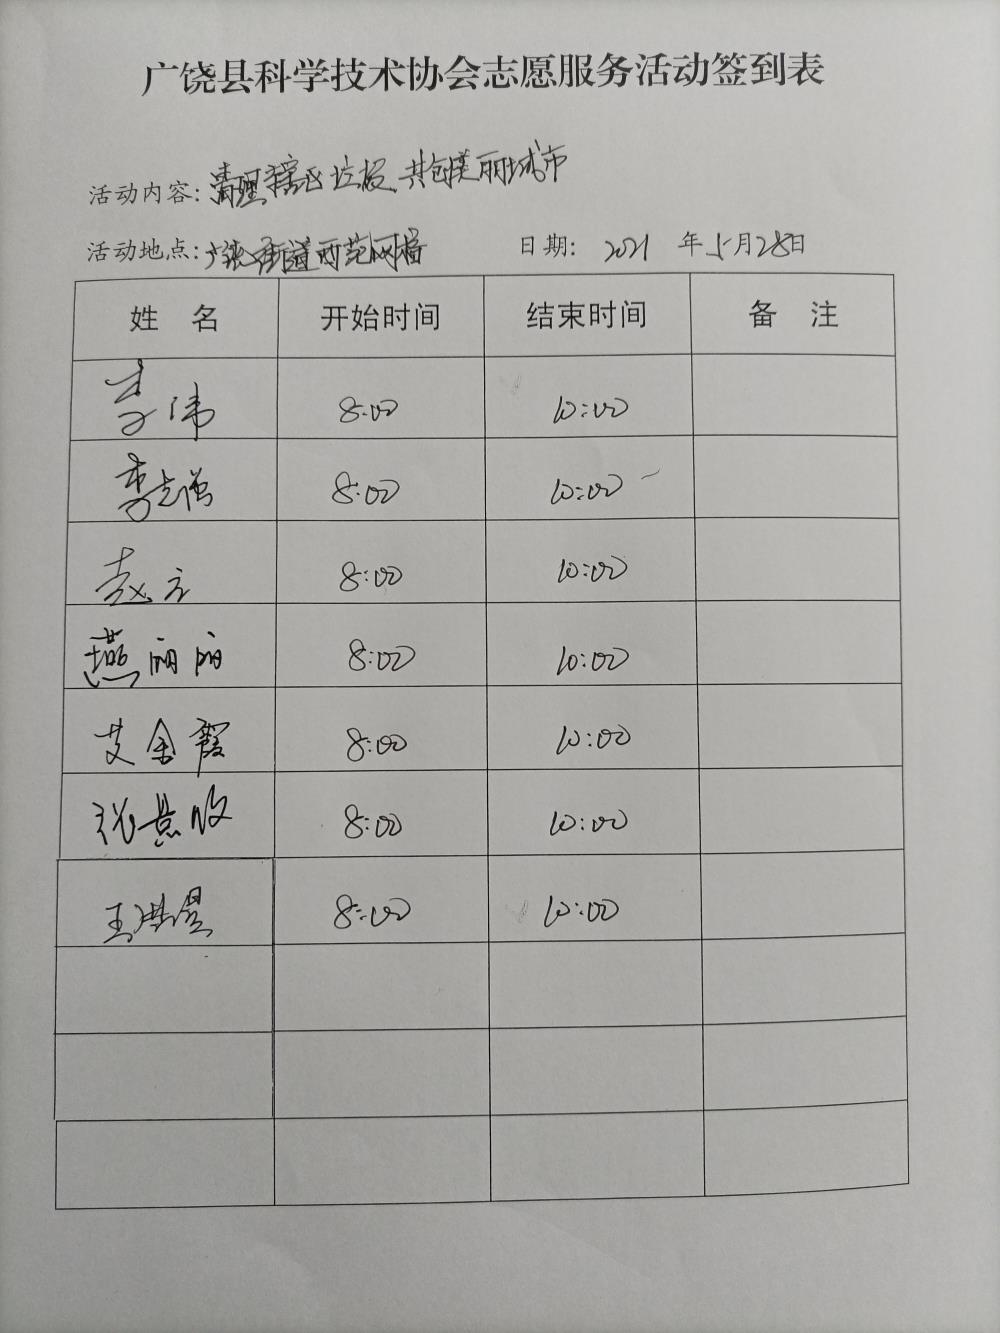 广饶县科学技术协会志愿服务活动签到表
活动内容：清理辖区垃圾，共创美丽城市
活动地点：广饶街道 日期： 2021 年 5月28日
姓 名 开始时间 结束时间 备 注
李伟 8:00 10:00
李志增 8:00 10:00
赵立 8:00 10:00
燕丽丽 8:00 10:00
艾金霞 8:00 10:00
张景收 8:00 10:00
王洪昱 8:00 10:00